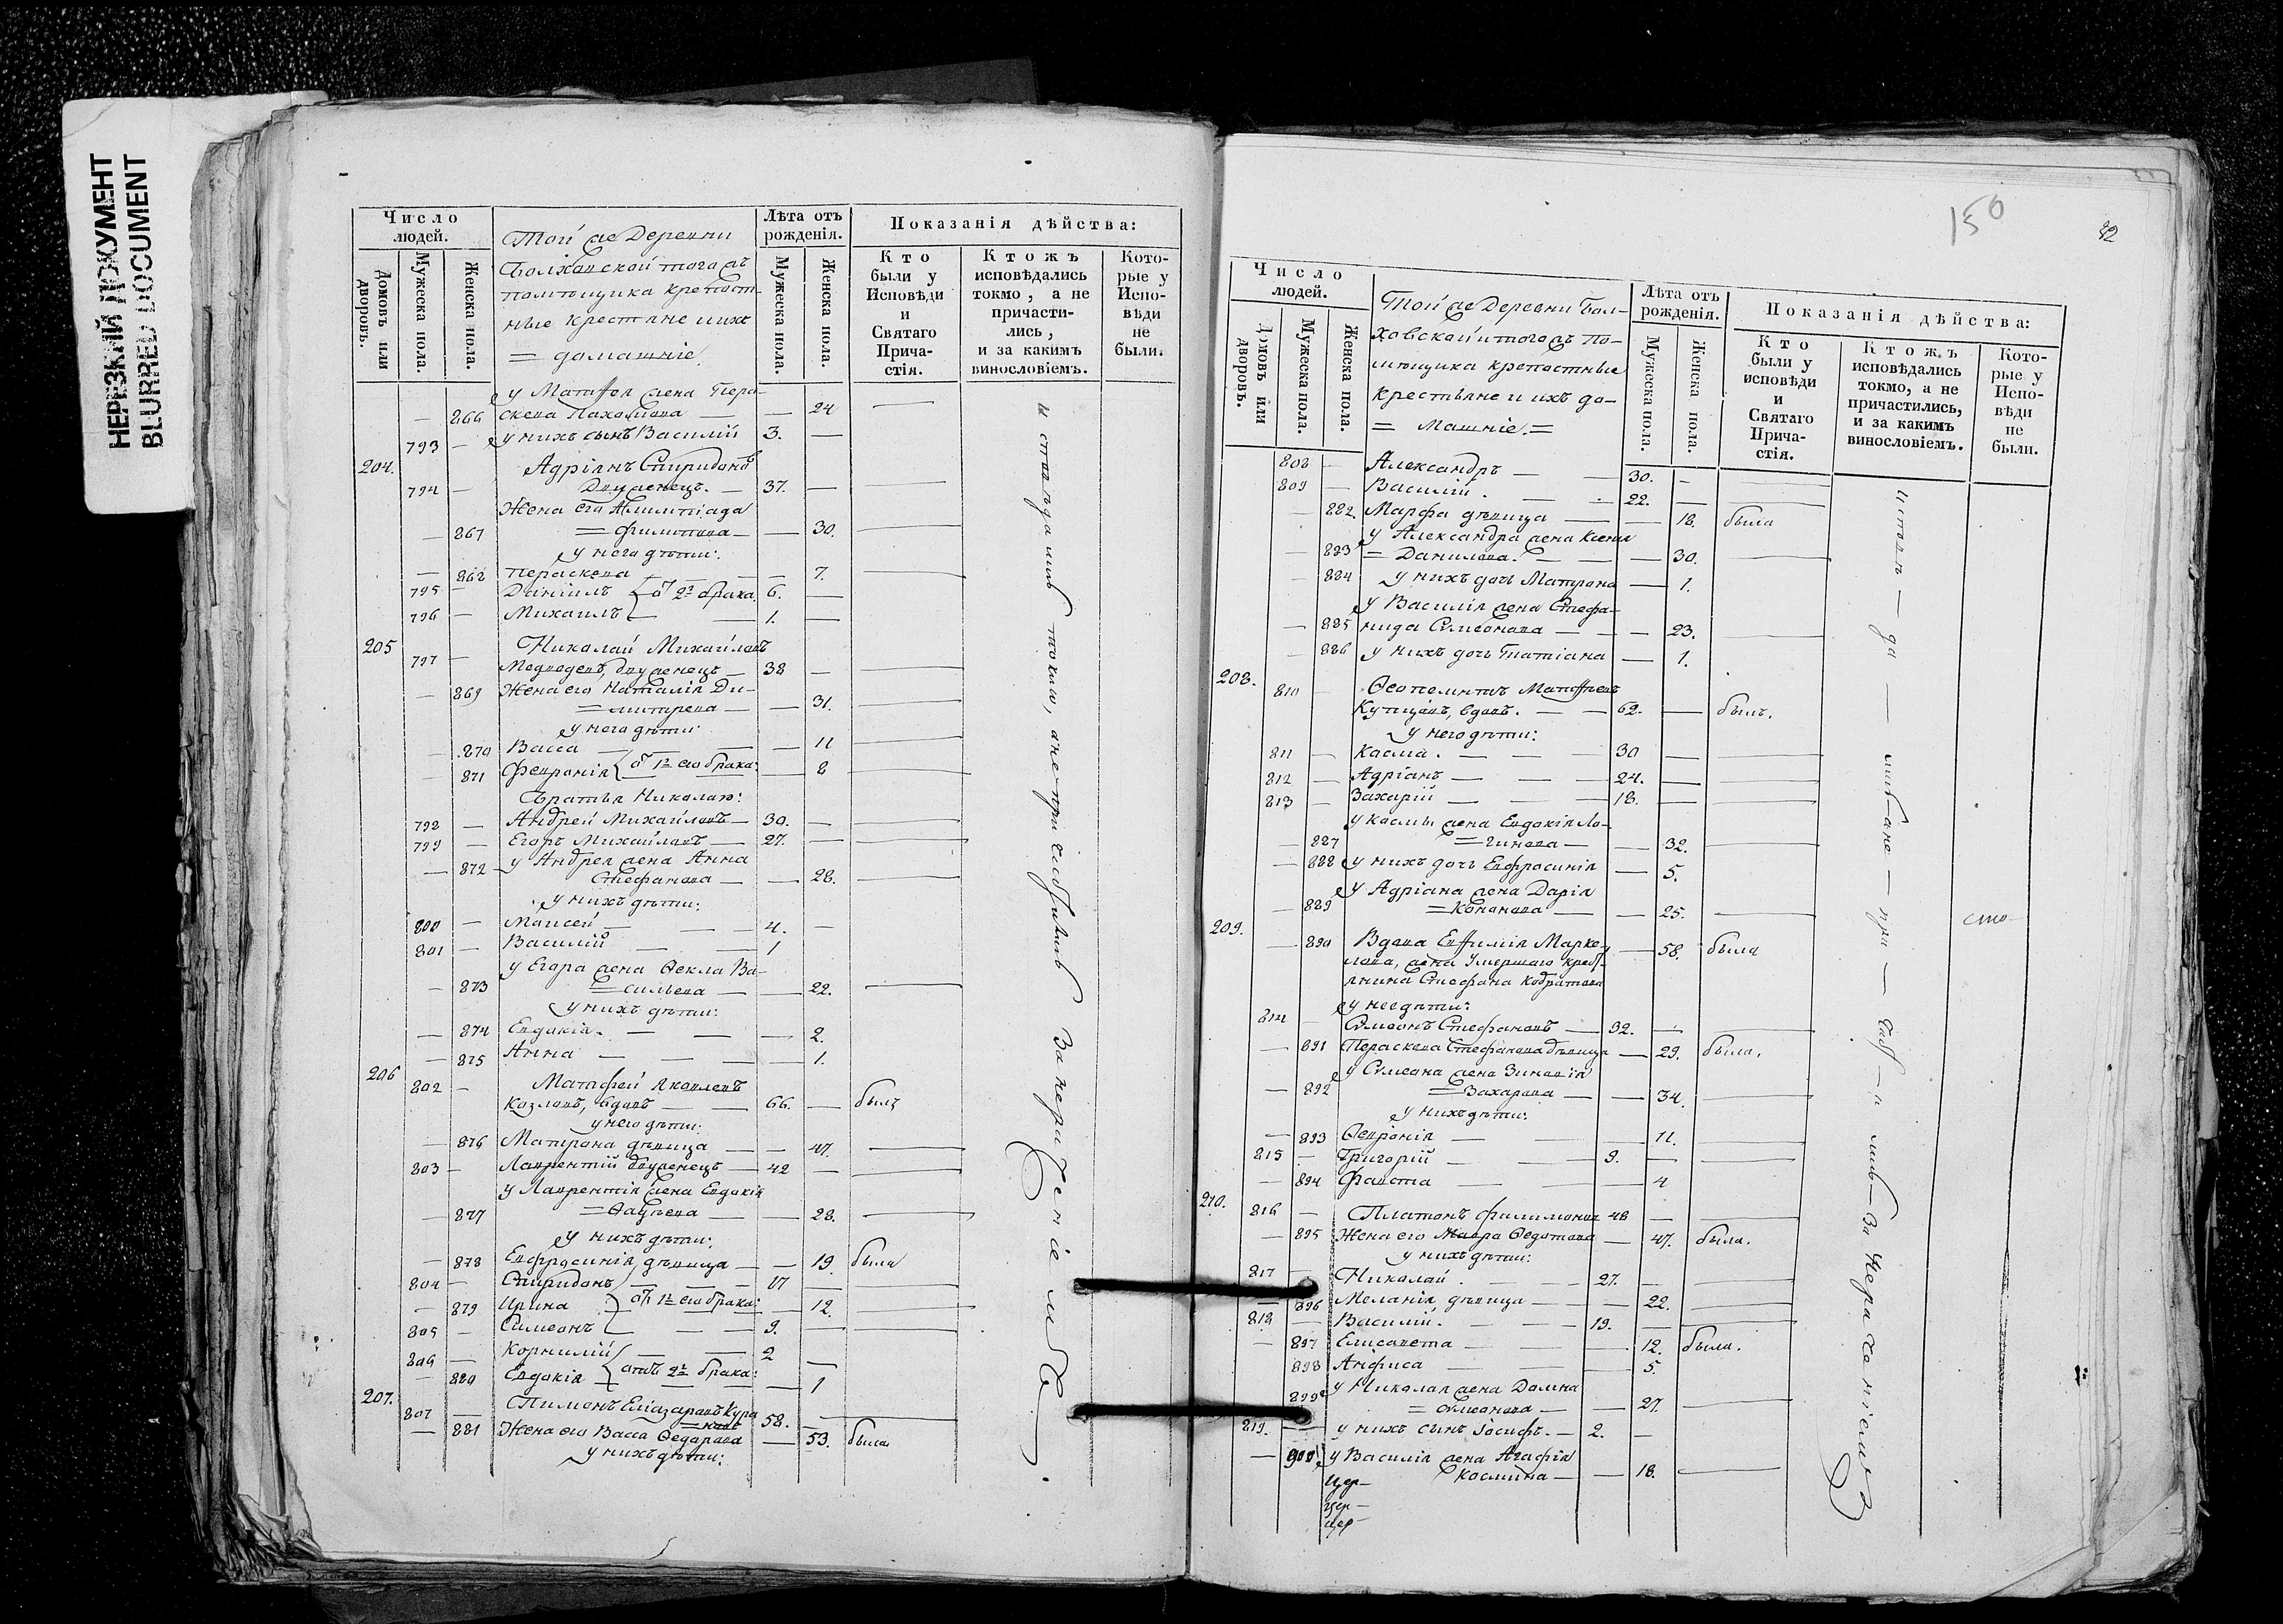 НЕРЕЗКИЙ ДОКУМЕНТ
BLURRED DOCUMENT
Число людей.
Домовъ или дворовъ.
Мужеска пола.
Женска пола.
Той же Деревни
Болховской тогожъ
помѣщика крепост-
ные крестьяне иихъ
= домашніе
Лѣта отъ рожденія.
Мужеска пола.
Женска пола.
Показанія дѣйства:
Кто были у Исповѣди и Святаго Прича-стія.
Ктожъ исповѣдались токмо, а не причасти-лись, и за какимъ винословіемъ.
Кото-рые у Испо-вѣди не были.
у Матфея жена Пера-
— 866 скева Пахомова — — 24 —
793 — у нихъ сынъ Василій 3. —
204. Адріянъ Спиридоновъ
794 — Двуженецъ. — 37. — —
Жена его Алимпіада
— 867 = Филипова — — 30. —
у него дѣти:
— 868 Пераскева — — 7. —
795 — Даніилъ отъ 2го брака. 6. —
796 — Михаилъ — 1. —
205 Николай Михайловъ
797 — Медведевъ, двуженецъ — 38 — —
— 869 Жена его Наталія Ди-
= митрева — — 31. —
у него дѣти:
— 870 Васса — — — 11 —
— 871 Февронія отъ 1го его брака: — 8 —
Братья Николаю:
798 — Андрей Михайловъ — 30. — —
799 — Егоръ Михайловъ — 27. — —
— 872 у Андрея жена Анна
Стефанова — — 28. —
у нихъ дѣти:
800 — Моисей — — 4. —
801 — Василій — — 1
у Егора жена Ѳекла Ва-
— 873 = сильева — — 22. —
у нихъ дѣти:
— 874 Евдокія. — — — 2.
— 875 Анна — — — 1.
206 Матфей Яковлевъ
802 — Козловъ, вдовъ — — 66. — былъ
у него дѣти:
— 876 Матрона девица — — 47. —
803 — Лаврентій двуженецъ — 42 — —
у Лаврентія жена Евдокія
— 877 = Ѳадѣева — — 28. —
у нихъ дѣти:
— 878 Евфросинія, дѣвица — — 19. была
804 — Спиридонъ — — 17 — —
— 879 Ирина отъ 1го его брака: — 12. —
805 — Симеонъ — — 9. — —
806 — Корнилій — — 2 —
— 880 Евдокія отъ 2го брака: — 1
207. Пименъ Еліазаровъ Кура
807 — =ковъ 58. — —
— 881 Жена его Васса Ѳедорова — 53. была
у нихъ дѣти:
исповѣдались токмо, ане причастились За нераченіемъ.
150
Число людей.
Домовъ или дворовъ.
Мужеска пола.
Женска пола.
Той же Деревни Бол-
ховской и тогожъ по-
мѣщика крепостные
крестьяне и ихъ до-
= машніе. =
Лѣта отъ рожденія.
Мужеска пола.
Женска пола.
Показанія дѣйства:
Кто были у исповѣди и Святаго Прича-стія.
Ктожъ исповѣдались токмо, а не причастились, и за какимъ винословіемъ.
Кото-рые у Испо-вѣди не были.
808 — Александръ — — 30. — —
809 — Василій. — — 22. — —
— 882. Марфа дѣвица — — 18. была
у Александра жена Ксенія
— 883 = Данилова. — — 30. —
— 884 у нихъ дочь Матрона — 1.
у Василія жена Стефа-
— 885 нида Симеонова — — — 23. —
— 886 у нихъ дочь Татіана — 1.
208. 810 — Ѳеопемптъ Матфеевъ
Купцовъ, вдовъ. — — 62. — былъ.
у него дѣти:
811 — Косма. — — — 30 — —
812 — Адріанъ — — — 24. — —
813 — Захарій — — — 18. — —
у Космы жена Евдокія Ло-
— 887 = гинова — — 32. —
— 888 у нихъ дочь Евфросинія — 5.
у Адріана жена Дарія
— 889 = Кононова — — 25. —
209.
— 890 Вдова Евфимія Марке- — 58. была
лова, жена умершаго крест-
янина Стефана Кодратова
у нее дѣти:
814 — Симеонъ Стефановъ — 32. — —
— 891 Пераскева Стефанова дѣвица — 29. была.
у Симеона жена Зиновія
— 892 = Захарова — — 34. —
у нихъ дѣти:
— 893 Ѳевронія — — — 11. —
815 — Григорій — — 9. — —
— 894 Фавста — — — 4
210. 816 — Платонъ Филимонов 48 — —
— 895 Жена его Мавра Ѳедотова — 47. была.
у нихъ дѣти:
817 — Николай. — — 27. — —
— 896 Меланія дѣвица — — 22. —
818 — Василій. — — 19. — —
— 897 Елисавета — — — 12. была.
898 Анфиса — — — 5.
899 у Николая жена Домна
= Симеонова — — 27. —
819. — у нихъ сынъ Іосифъ. — 2. —
— 900 у Василія жена Агафія
Космина — — 18. —
Цер-
Цер-
Цер-
исповѣ — да — лись ане — при — час — ти лись — За Нераченіемъ